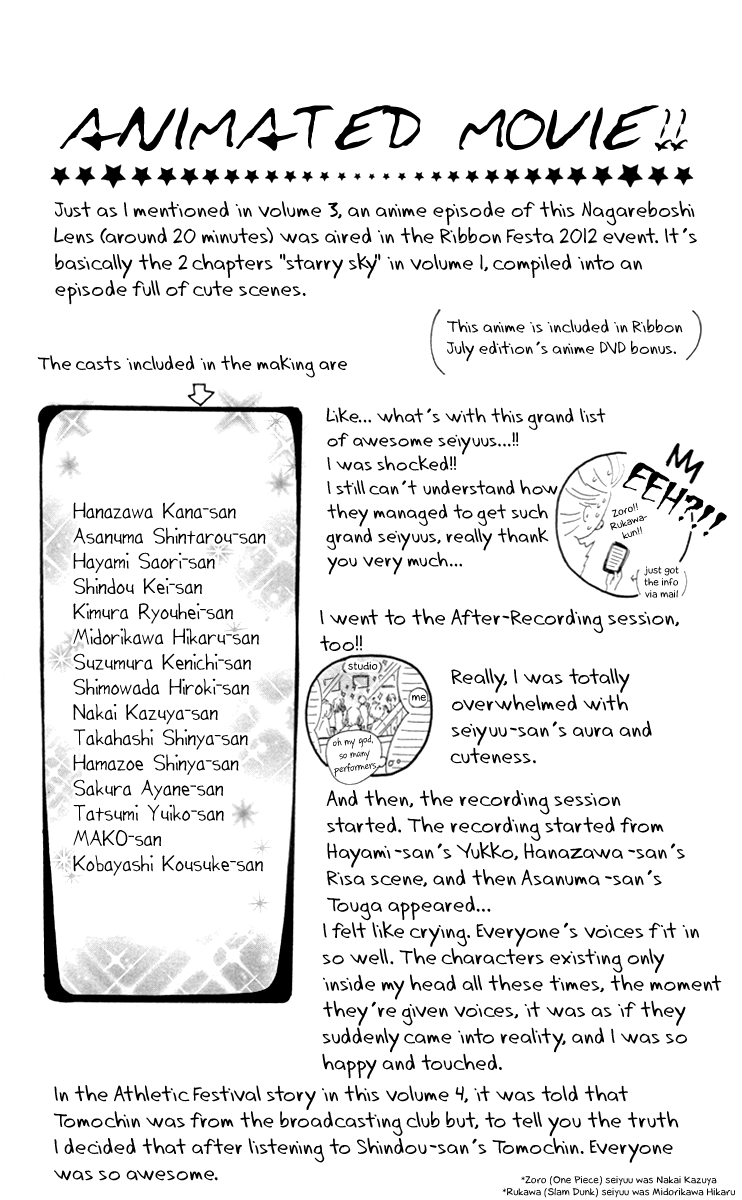 ANIMATED MOVIE!!
Just as I mentioned in volume 3, an anime episode of this Nagareboshi
Lens (around 20 minutes) was aired in the Ribbon Festa 2012 event. It's
basically the 2 chapters "starry sky" in volume 1, compiled into an
episode full of cute scenes.
This anime is included in Ribbon
July edition's anime DVD bonus.
The casts included in the making are
Hanazawa Kana-san
Asanuma Shintarou-san
Hayami Saori-san
Shindou Kei-san
Kimura Ryouhei-san
Midorikawa Hikaru-san
Suzumura Kenichi-san
Shimowada Hiroki-san
Nakai Kazuya-san
Takahashi Shinya-san
Hamazoe Shinya-san
Sakura Ayane-san
Tatsumi Yuiko-san
MAKO-san
Kobayashi Kousuke-san
Like... what's with this grand list
of awesome seiyuus...!!
I was shocked!!
I still can't understand how
they managed to get such
grand seiyuus, really thank
you very much...
EEH?!!
Zoro!!
Rukawa-
kun!!
just got
the info
via mail
I went to the After-Recording session,
too!!
(studio)
me
oh my god,
so many
performers
Really, I was totally
overwhelmed with
seiyuu-san's aura and
cuteness.
And then, the recording session
started. The recording started from
Hayami-san's Yukko, Hanazawa-san's
Risa scene, and then Asanuma-san's
Touga appeared...
I felt like crying. Everyone's voices fit in
so well. The characters existing only
inside my head all these times, the moment
they're given voices, it was as if they
suddenly came into reality, and I was so
happy and touched.
In the Athletic Festival story in this volume 4, it was told that
Tomochin was from the broadcasting club but, to tell you the truth
I decided that after listening to Shindou-san's Tomochin. Everyone
was so awesome.
*Zoro (One Piece) seiyuu was Nakai Kazuya
*Rukawa (Slam Dunk) seiyuu was Midorikawa Hikaru